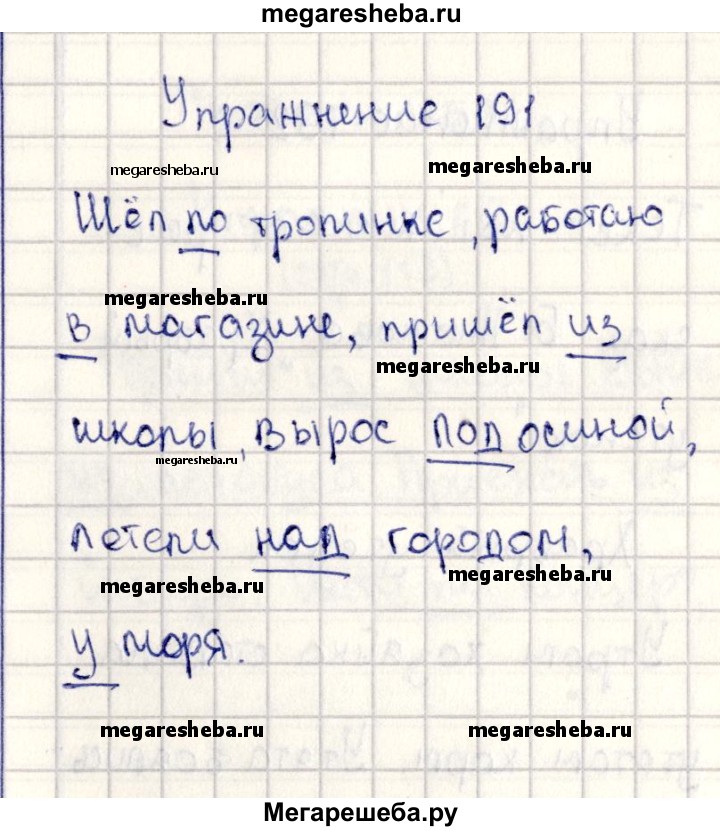 megaresheba.ru
Упражнение 191
megaresheba.ru megaresheba.ru
Шёл по тропинке, работаю
megaresheba.ru
в магазине, пришёл из
megaresheba.ru
школы, вырос под осиной,
megaresheba.ru
летели над городом,
megaresheba.ru megaresheba.ru
у моря.
megaresheba.ru megaresheba.ru
Мегарешеба.ру